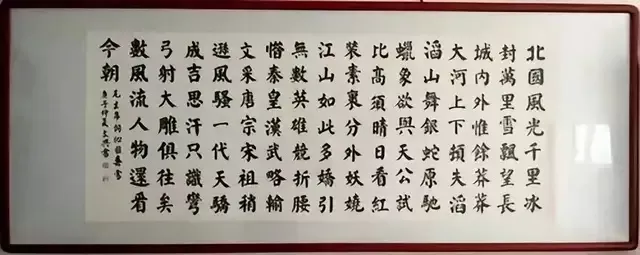 北國風光千里冰
封萬里雪飄望長
城内外惟餘莽莽
大河上下頓失滔
滔山舞銀蛇原馳
蠟象欲與天公試
比高須晴日看紅
裝素裹分外妖嬈
江山如此多嬌引
無數英雄競折腰
惜秦皇漢武略輸
文采唐宗宋祖稍
遜風騷一代天驕
成吉思汗只識彎
弓射大雕俱往矣
數風流人物還看
今朝
毛主席詞沁園春雪
庚子仲夏文興書